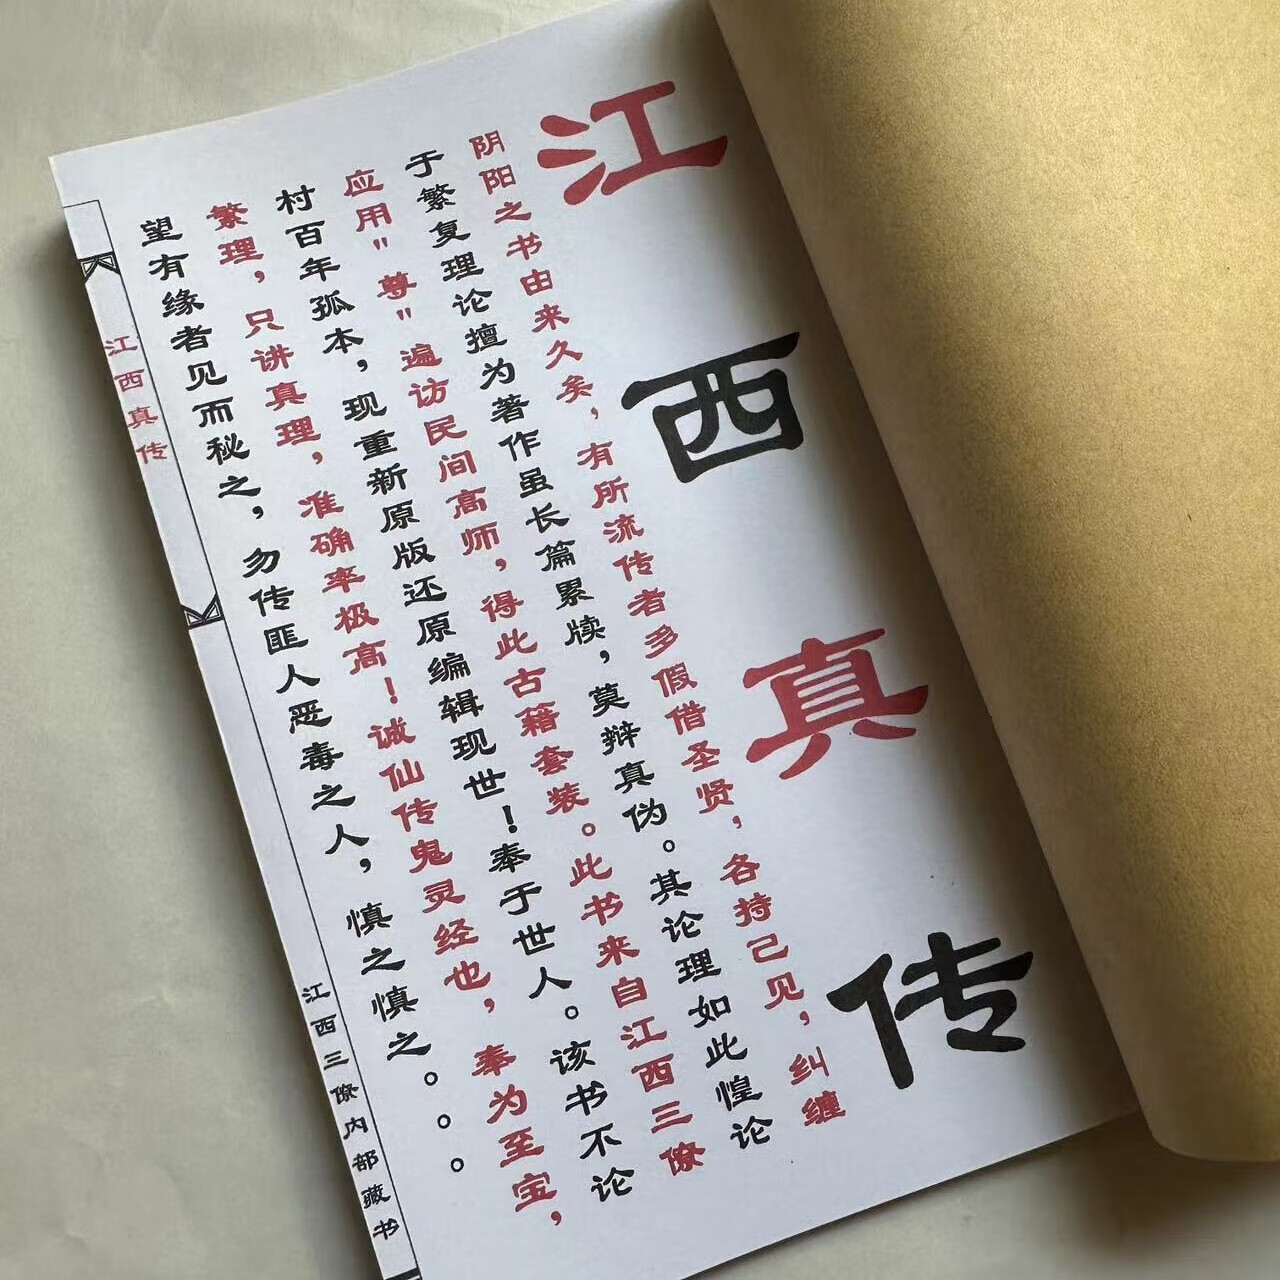 江西真传
阴阳之书由来久矣，有所流传者多假借圣贤，各持己见，纠缠
于繁复理论擅为著作虽长篇累牍，莫辩真伪。其论理如此惶论
应用"尊"遍访民间高师，得此古籍套装。此书来自江西三僚
村百年孤本，现重新原版还原编辑现世！奉于世人。该书不论
繁理，只讲真理，准确率极高！诚仙传鬼灵经也，奉为至宝，
望有缘者见而秘之，勿传匪人恶毒之人，慎之慎之。。。
江西真传
江西三僚内部藏书